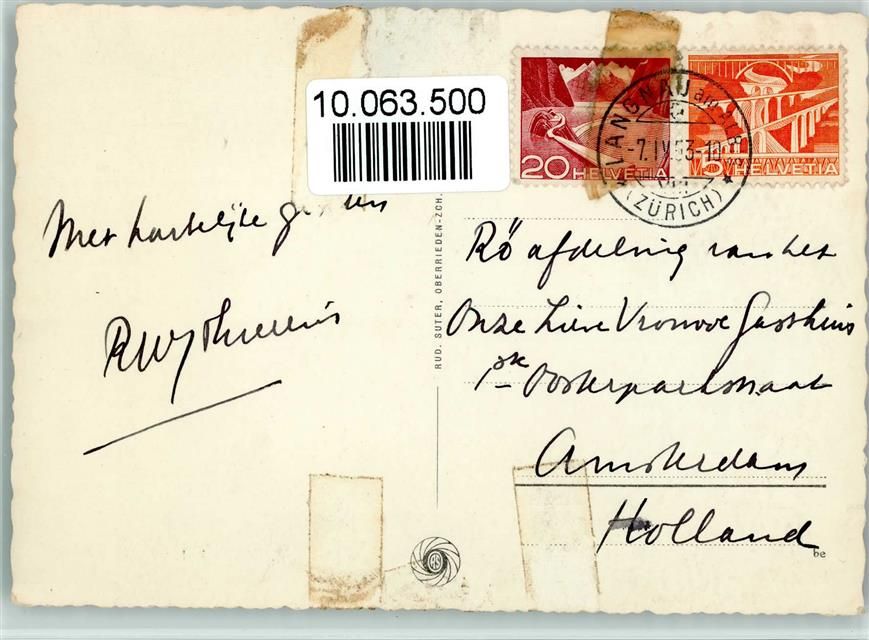 10.063.500
20 HELVETIA
5 HELVETIA
LANGNAU am ALBIS
-7.IV.53-10
(ZÜRICH)
Met hartelijke
RUD. SUTER, OBERRIEDEN-ZCH.
Rö afdeling van het
Onze Lieve Vrouwe Gasthuis
1ste Oosterparkstraat
Amsterdam
Holland
be